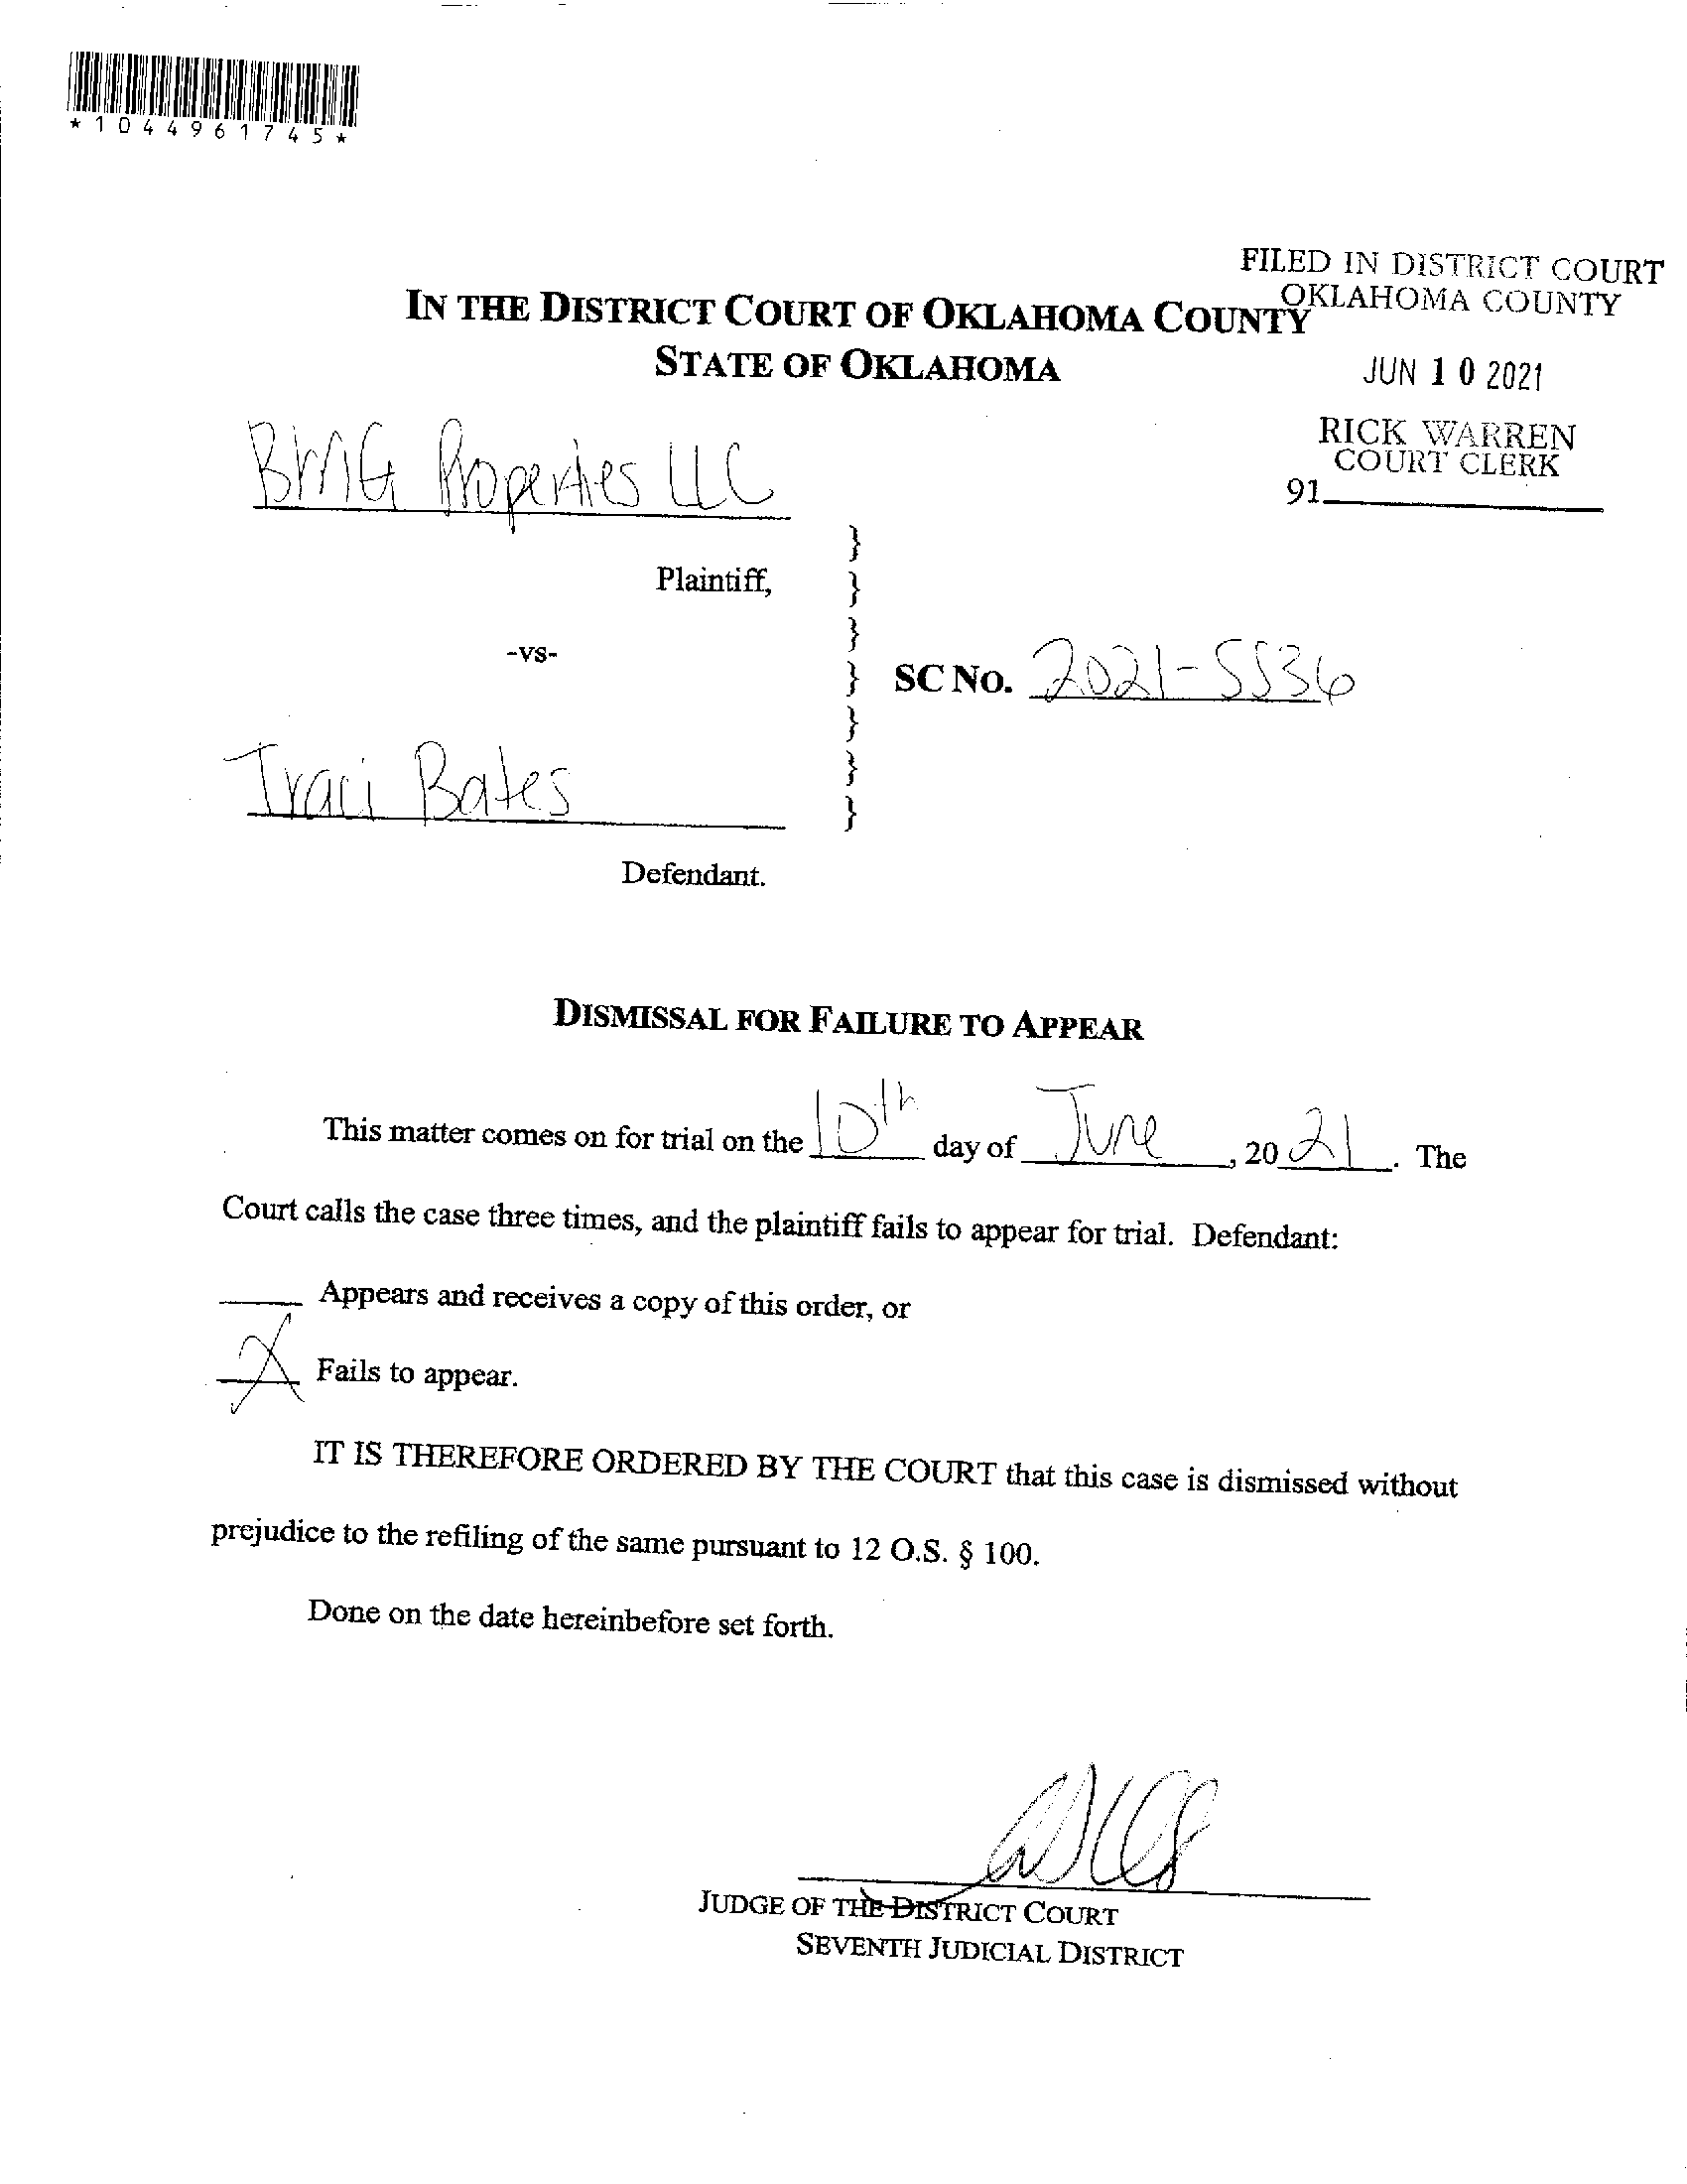 *1044961745*
FILED IN DISTRICT COURT
OKLAHOMA COUNTY
IN THE DISTRICT COURT OF OKLAHOMA COUNTY
STATE OF OKLAHOMA
JUN 10 2021
RICK WARREN
COURT CLERK
91
BMG Properties LLC
Plaintiff,
-vs-
SC NO. 2021-5536
Traci Bates
Defendant.
}
}
}
}
}
}
}
DISMISSAL FOR FAILURE TO APPEAR
This matter comes on for trial on the 10th day of June, 2021. The
Court calls the case three times, and the plaintiff fails to appear for trial. Defendant:
____ Appears and receives a copy of this order, or
X Fails to appear.
IT IS THEREFORE ORDERED BY THE COURT that this case is dismissed without
prejudice to the refiling of the same pursuant to 12 O.S. § 100.
Done on the date hereinbefore set forth.
JUDGE OF THE DISTRICT COURT
SEVENTH JUDICIAL DISTRICT